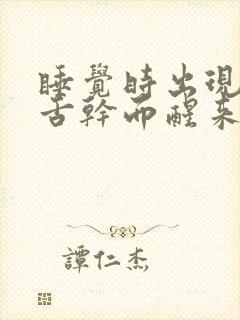 睡覺時出現
舌幹而醒来
譚仁杰